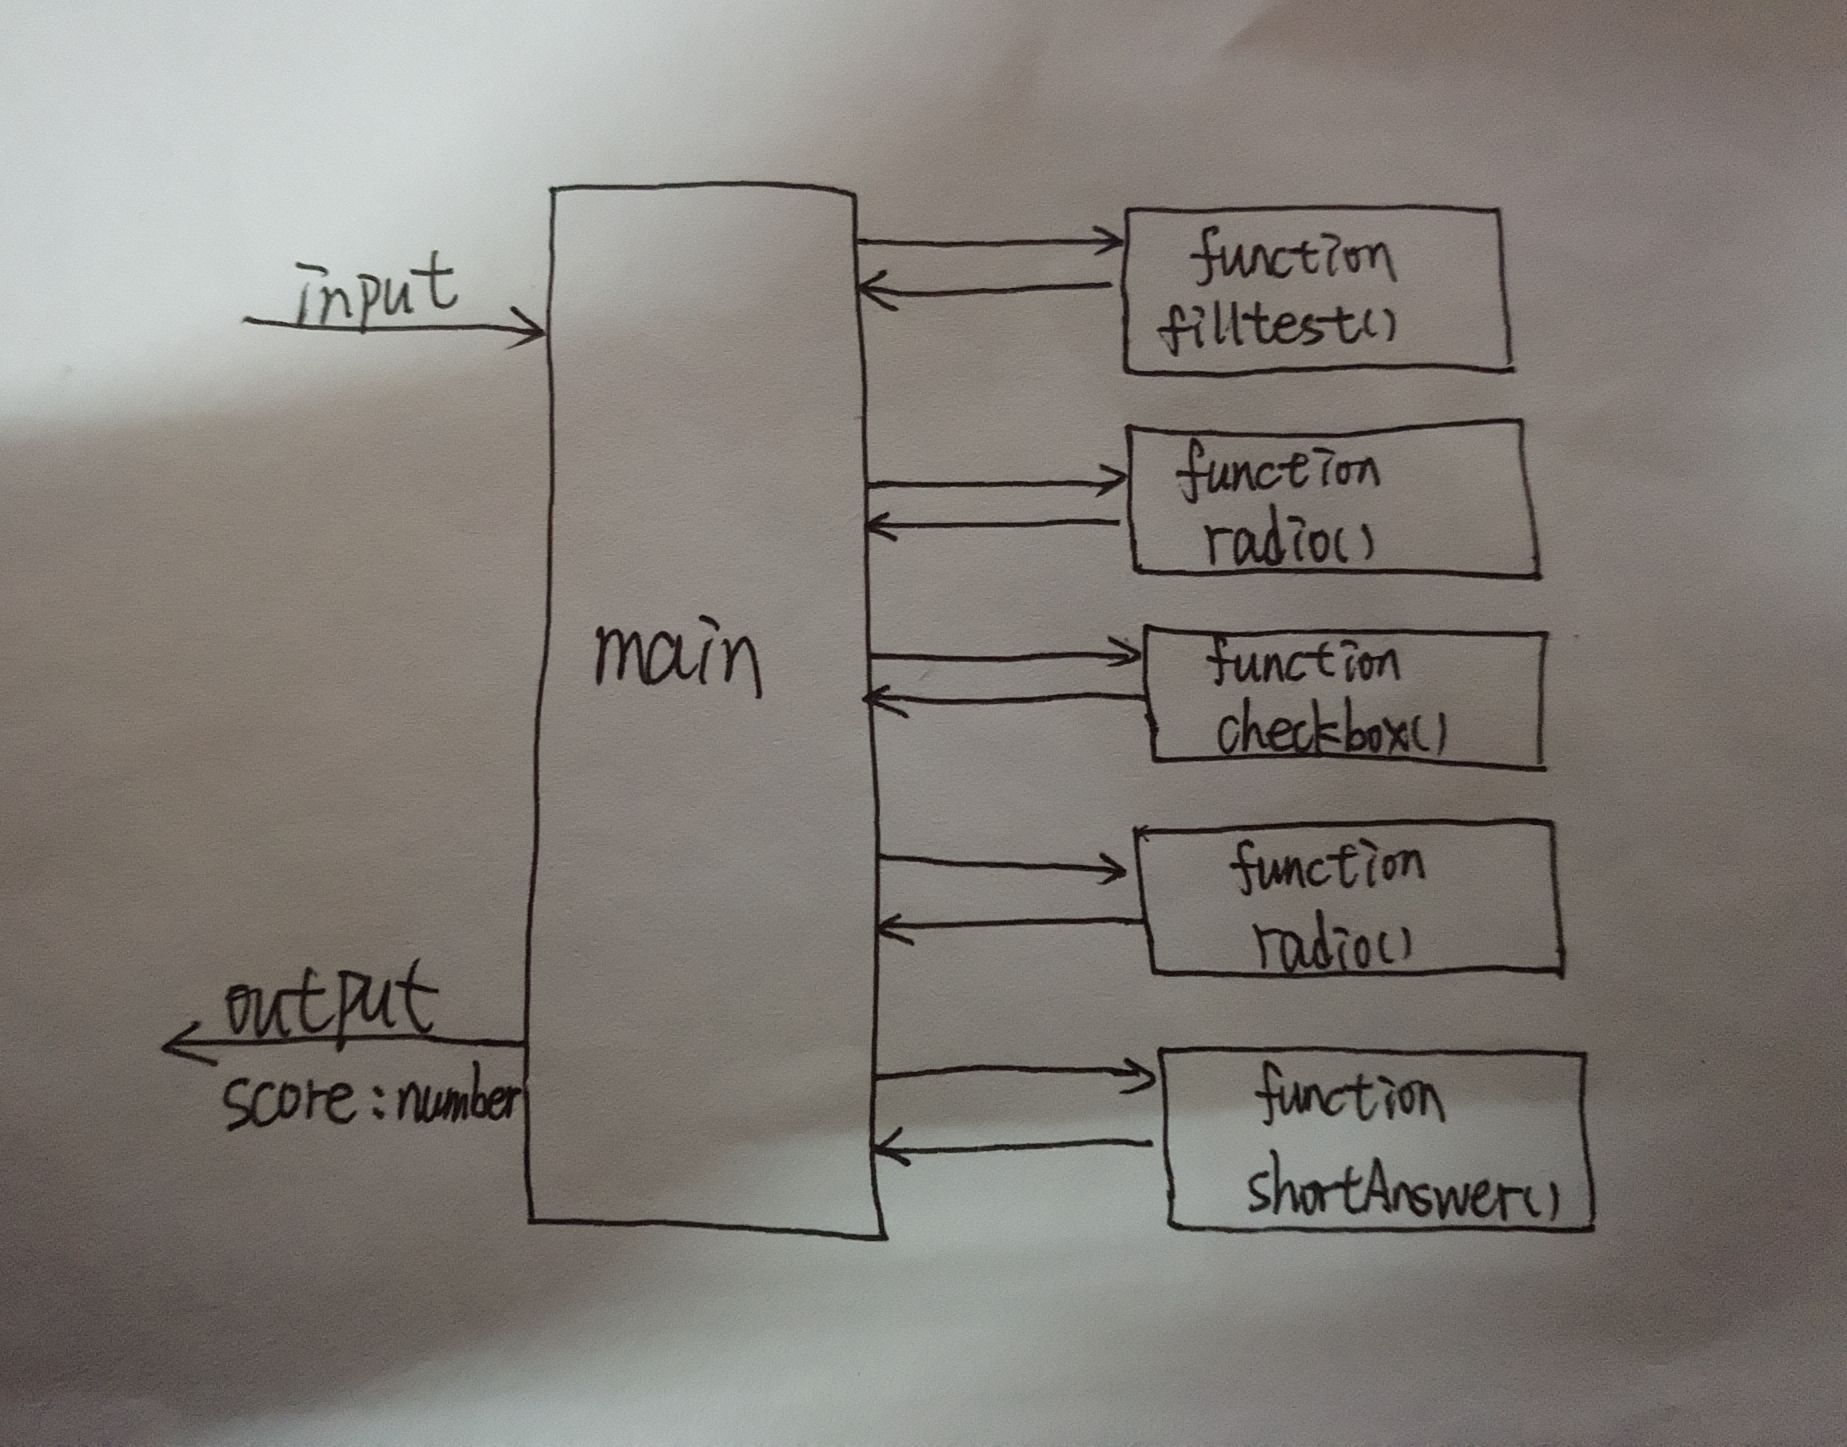 input
main
output
score:number
function
filltest()
function
radio()
function
checkbox()
function
radio()
function
shortAnswer()